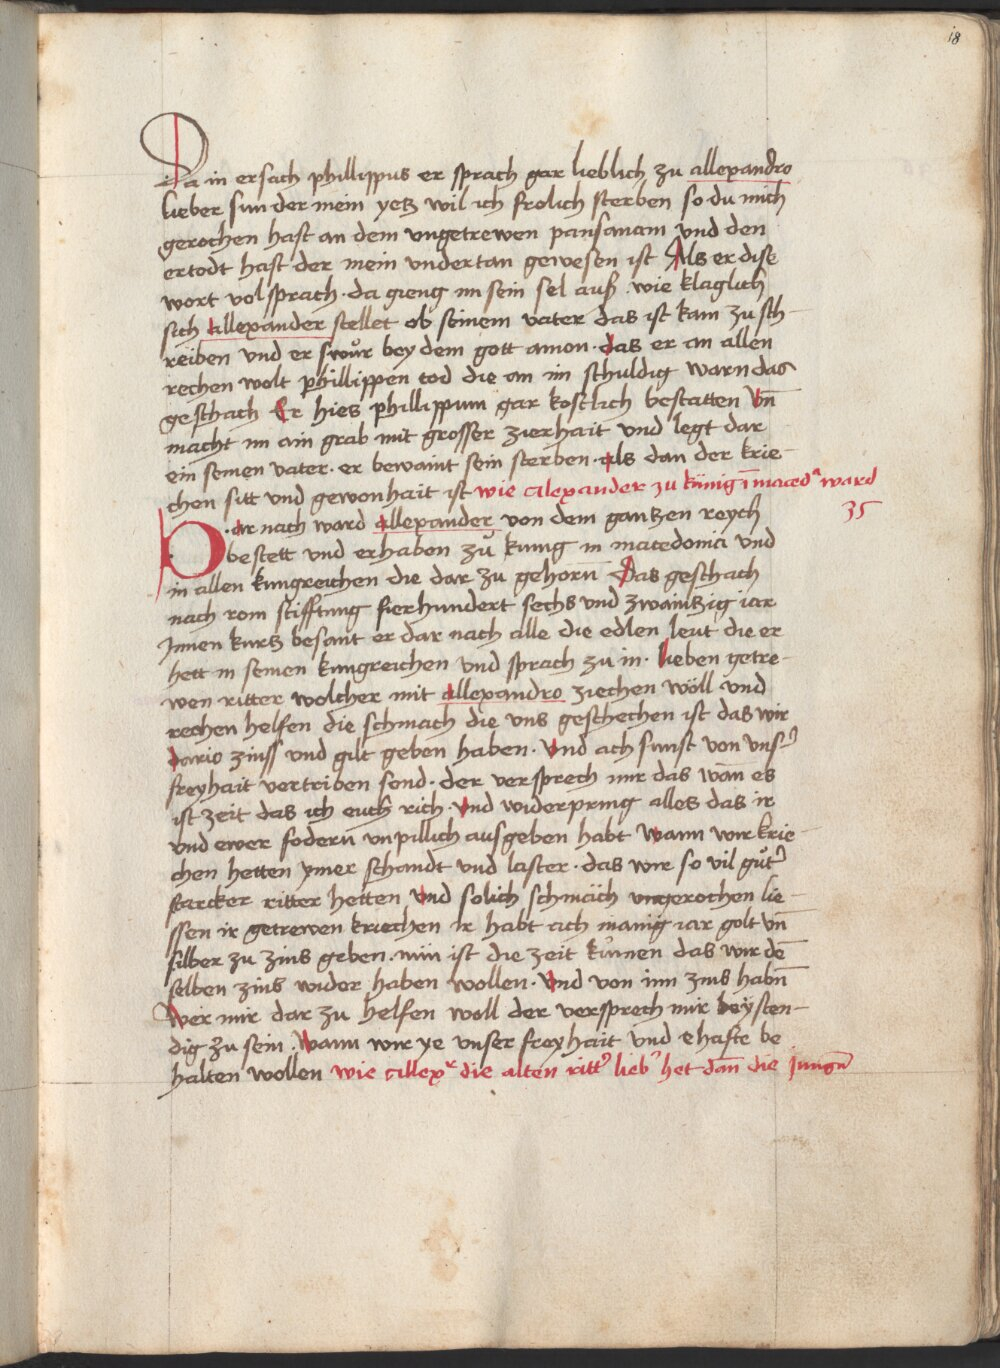 18
Da in ersach phillippus er sprach gar lieblich zu allexandro
lieber sun der mein yetz wil ich frolich sterben so du mich
gerochen hast an dem ungetrewen pansaniam und den
ertodt hast der mein undertan gewesen ist Als er dise
wort vol sprach · da gieng im sein sel auß wie klaglich
sich allexander stellet ob seinem vater das ist kam zu sch-
reiben und er swůr bey dem gott amon · das er an allen
rechen wolt phillippen tod die an im schuldig warn das
geschach Er hies phillippum gar kostlich bestatten Vn̄
macht im ain grab mit grosser zierhait und legt dar
ein seinen vater · er bewaint sein sterben · als dan der krie-
chen sitt und gewonhait ist wie alexander zu künig ī maced² ward
35
D·ar nach ward allexander von dem gantzen reych
bestett und erhaben zů kunig in macedonia und
in allen kungreichen die dar zu gehorn̄ Das geschach
nach rom stifftung fierhundert sechs und zwaintzig iar
Innen kurtz besant er dar nach alle die edlen leut die er
hett in seinen kungreichen und sprach zu in · lieben getre-
wen ritter wolcher mit allexandro ziechen wöll und
rechen helfen die schmach die uns geschechen ist das wir
dario zinss und gilt geben haben · Vnd ach sunst von vns²
freyhait vertriben send · der versprech mir das wān es
ist zeit das ich euch rich · Vnd widerpring alles das ir
und ewer fodern̄ unpillich ausgeben habt Wann wir krie-
chen hetten ymer schandt und laster · das wir so vil gůt²
starcker ritter hetten Vnd solich schmäch ungerochen lie-
ssen ir getrewen kriechen Ir habt ach manig iar golt vn̄
silber zu zins geben · nun ist die zeit kumen das wir dē
selben zins wider haben wollen · Vnd von inn zins habn̄
Wer mir dar zu helfen woll der versprech mir beysten-
dig zu sein · Wann wir ye unser freyhait und ehafte be
halten wollen wie allex² die alten ritt² lieb² het dan̄ die jungn̄